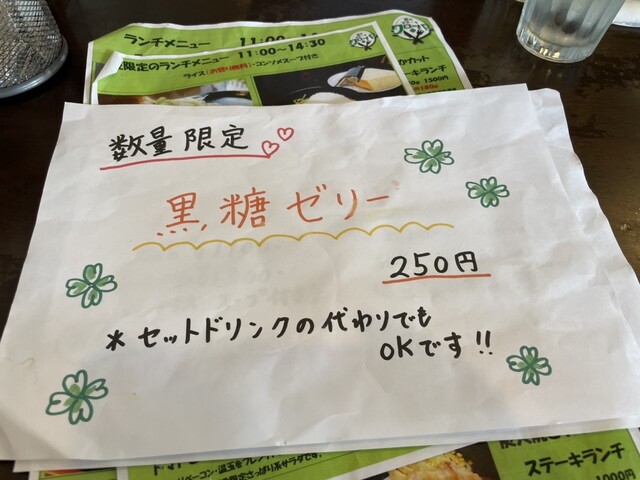 ランチメニュー 11:00～14
限定のランチメニュー 11:00～14:30
ライス(お替り無料)・コンソメスープ付き
カット
ーキランチ
1500円
数量限定
黒糖ゼリー
250円
＊セットドリンクの代わりでも
OKです!!
ステーキランチ